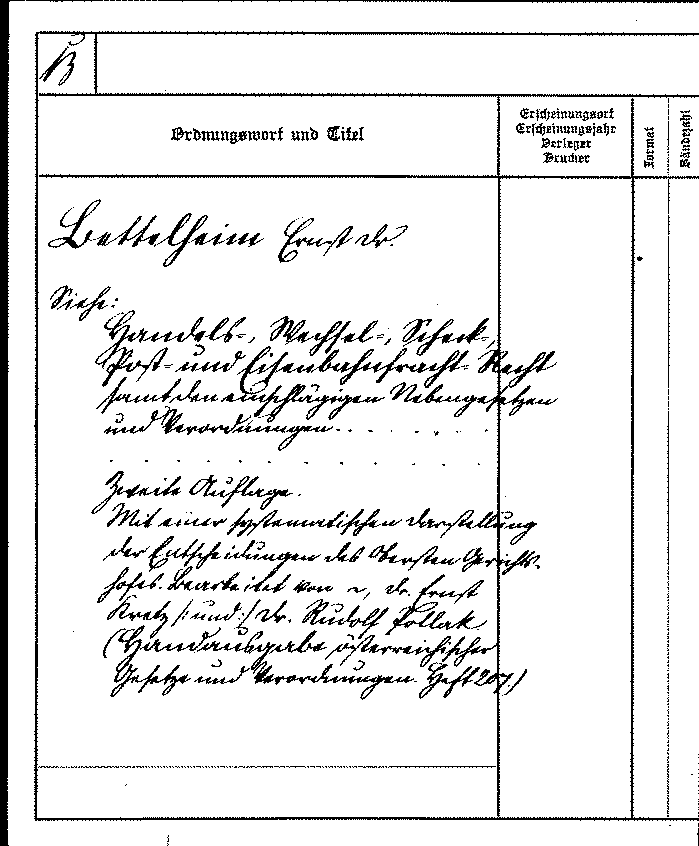 B
Ordnungswort und Titel
Erscheinungsort
Erscheinungsjahr
Verleger
Drucker
Format
Bändezahl
Bettelheim Ernst Dr.
Siehe:
Handels-, Wechsel-, Scheck-,
Post- und Eisenbahnfracht-Recht
samt den einschlägigen Nebengesetzen
und Verordnungen. . . . . . .
. . . . . . . . . . . . . .
Zweite Auflage.
Mit einer systematischen Darstellung
der Entscheidungen des Obersten Gerichts-
hofes. Bearbeitet von ~, Dr. Ernst
Kretz /:und:/ Dr. Rudolf Pollak
(Handausgabe österreichischer
Gesetze und Verordnungen. Heft 207)